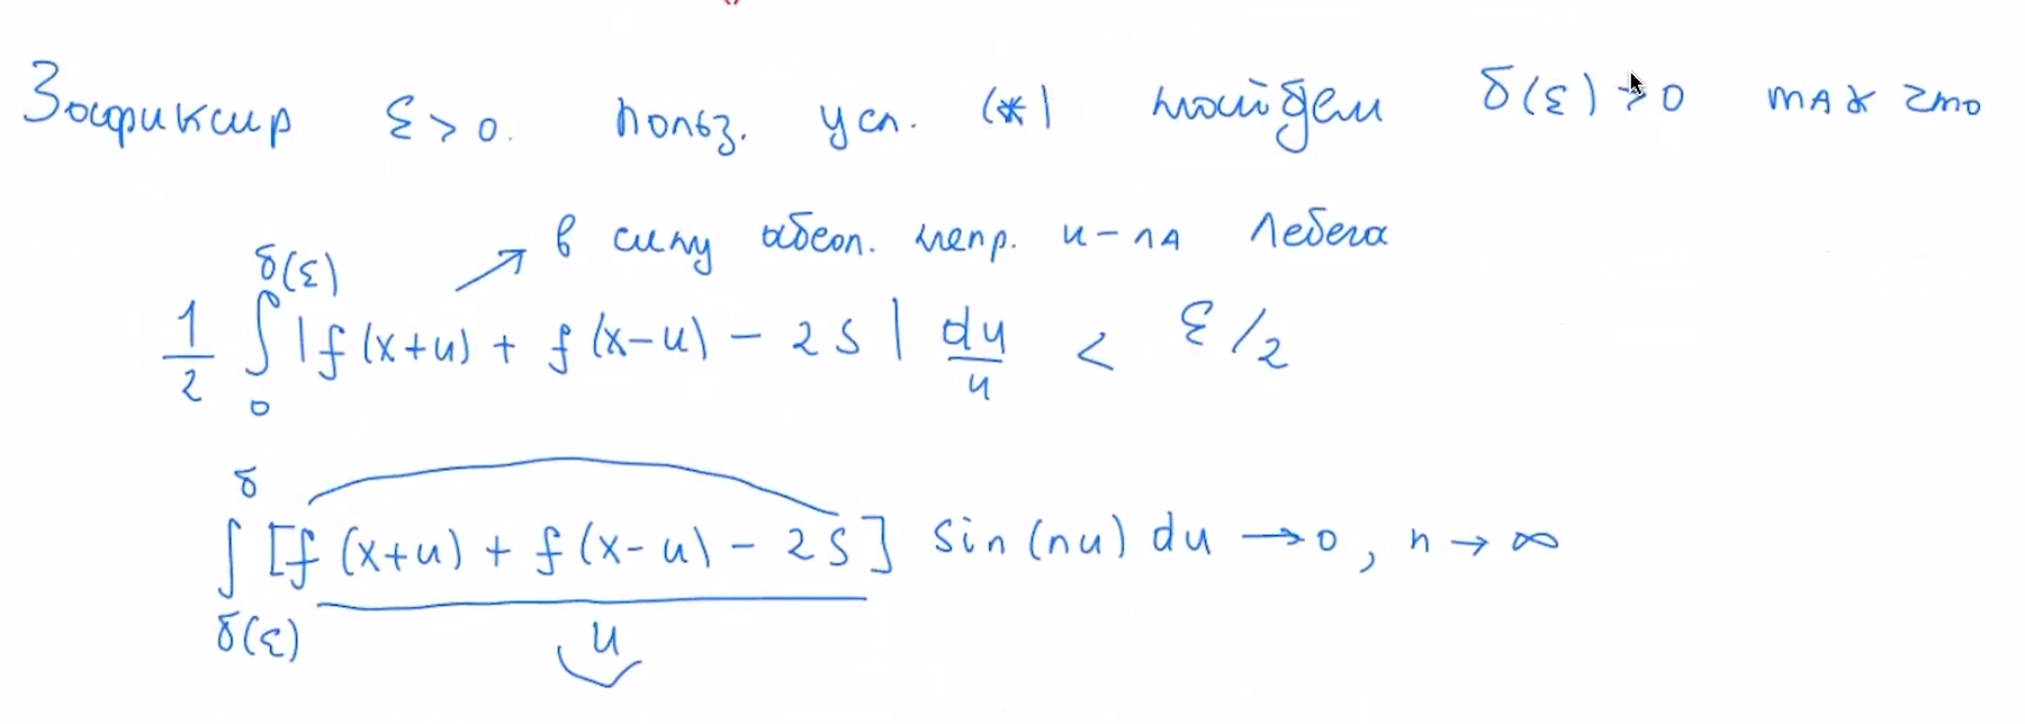 Зафиксир ε > 0. Польз. усл. (*) найдем δ(ε) > 0 так что
в силу абсол. непр. и-ла Лебега
1/2 ∫_0^{δ(ε)} |f(x+u) + f(x-u) - 2S| du/u < ε/2
∫_{δ(ε)}^{δ} [f(x+u) + f(x-u) - 2S]/u sin(nu) du → 0, n → ∞